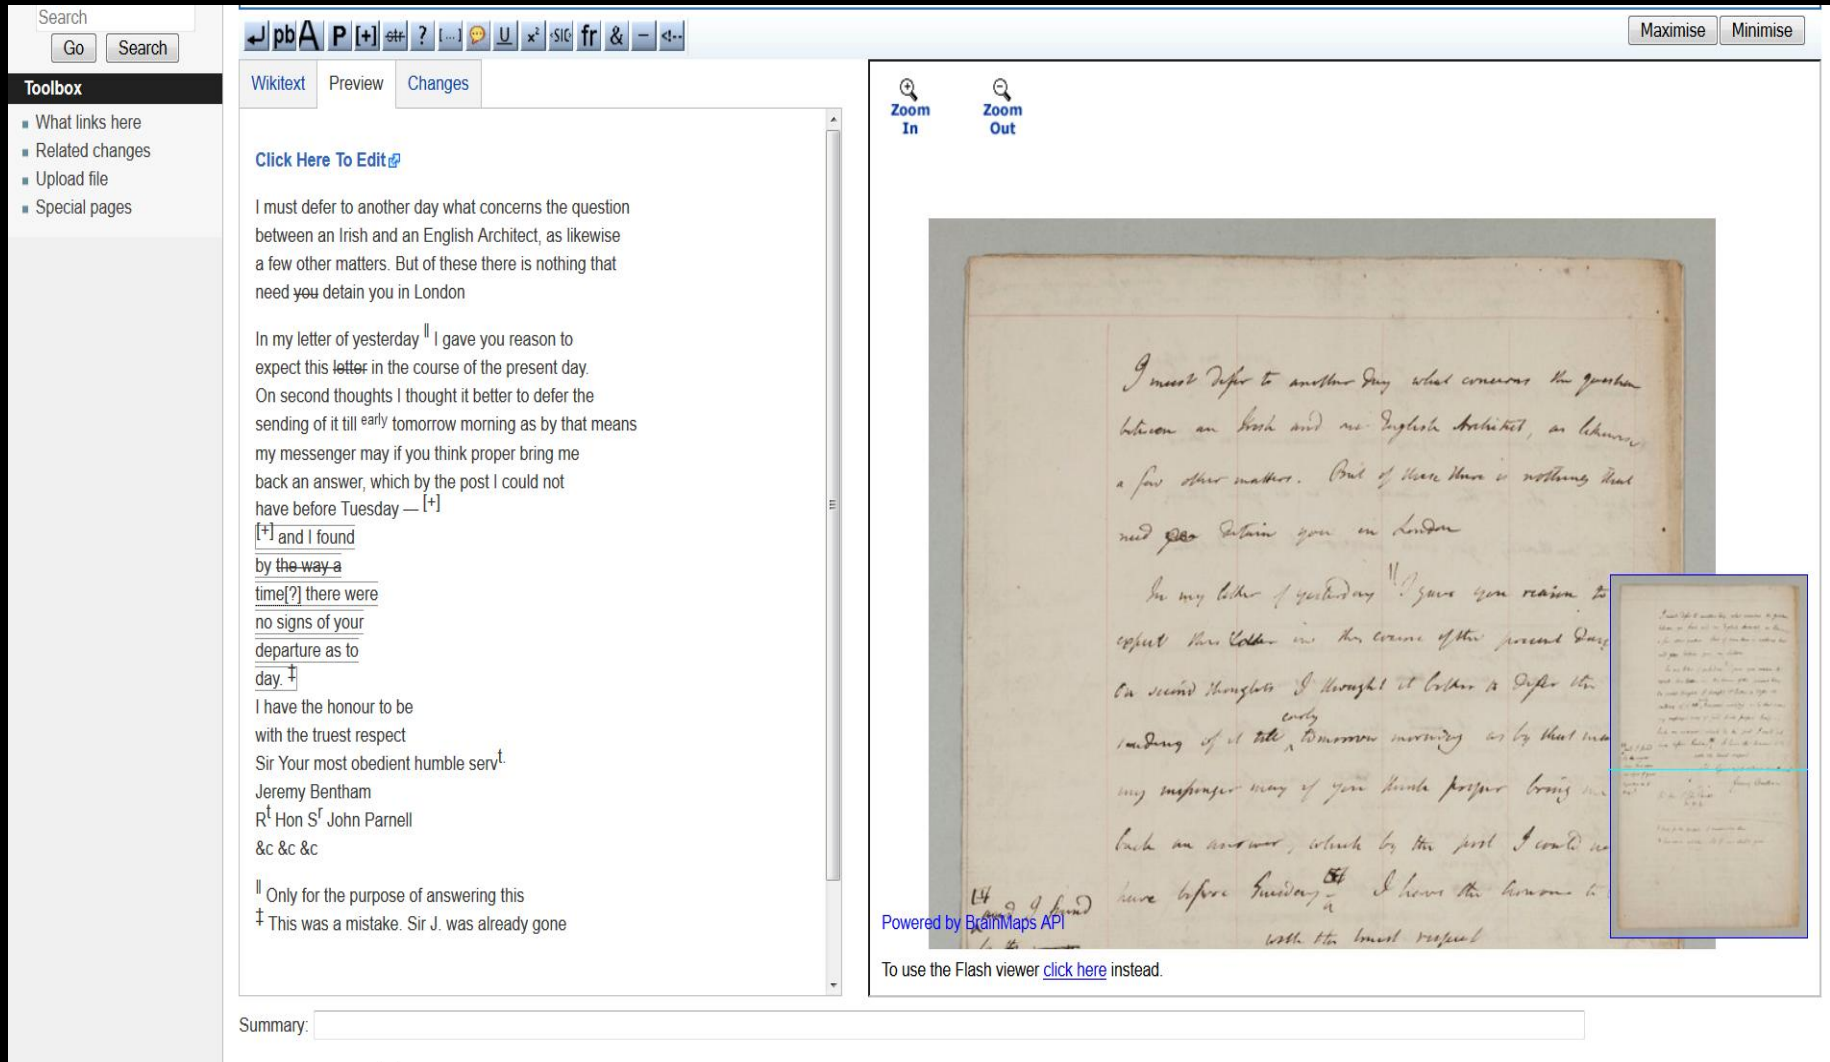 Search
Go Search
Toolbox
What links here
Related changes
Upload file
Special pages
pb A P [+] str ? [...] U x² ‹SIC fr & – <!--
Maximise Minimise
Wikitext Preview Changes
Click Here To Edit
I must defer to another day what concerns the question
between an Irish and an English Architect, as likewise
a few other matters. But of these there is nothing that
need you detain you in London
In my letter of yesterday || I gave you reason to
expect this letter in the course of the present day.
On second thoughts I thought it better to defer the
sending of it till early tomorrow morning as by that means
my messenger may if you think proper bring me
back an answer, which by the post I could not
have before Tuesday — [+]
[+] and I found
by the way a
time[?] there were
no signs of your
departure as to
day. ‡
I have the honour to be
with the truest respect
Sir Your most obedient humble servt.
Jeremy Bentham
Rt Hon Sr John Parnell
&c &c &c
|| Only for the purpose of answering this
‡ This was a mistake. Sir J. was already gone
Zoom In
Zoom Out
I must defer to another day what concerns the question
between an Irish and an English Architect, as likewise
a few other matters. But of these there is nothing that
need you detain you in London
In my letter of yesterday || I gave you reason to
expect this letter in the course of the present day
On second thoughts I thought it better to defer the
early
sending of it till ^ tomorrow morning as by that
my messenger may if you think proper bring
back an answer, which by the post I could
have before Tuesday I have the honour to
[+] and I found
with the truest respect
by the
Powered by BrainMaps API
To use the Flash viewer click here instead.
Summary: